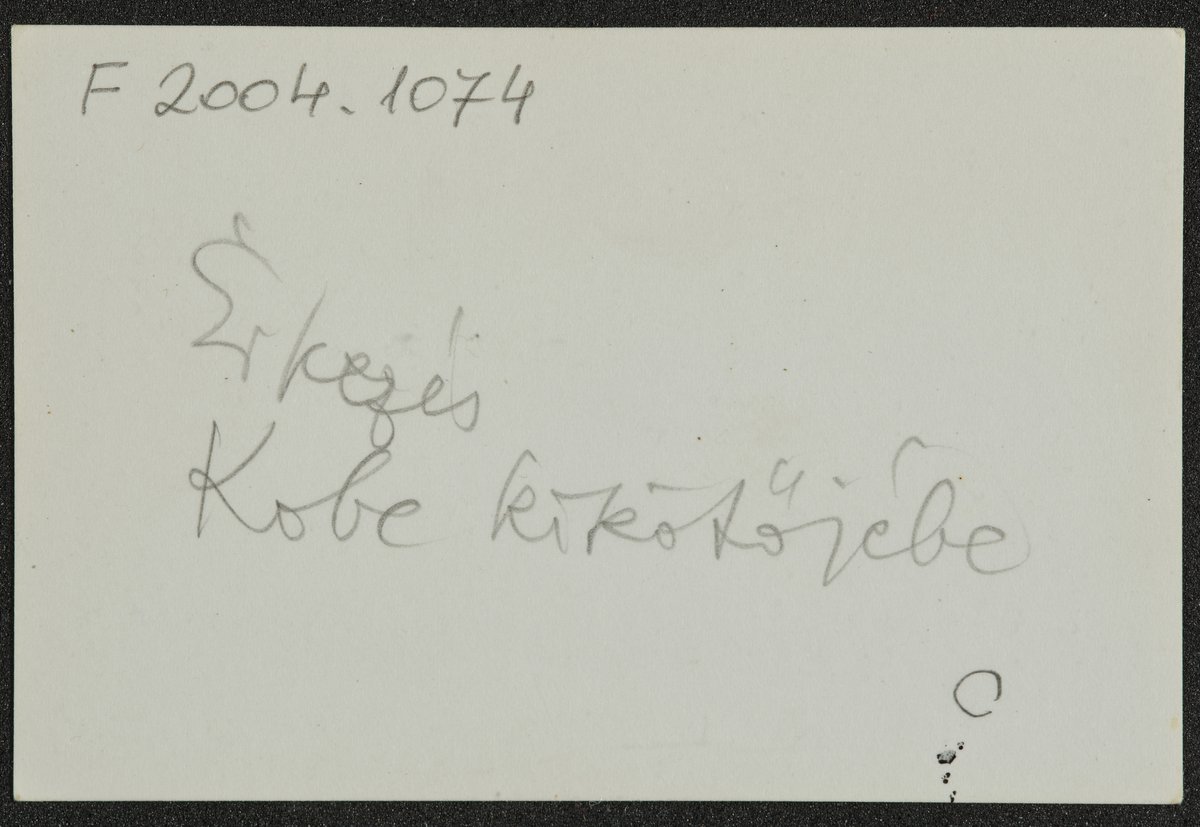 F 2004.1074
Érkezés
Kobe kikötőjébe
C